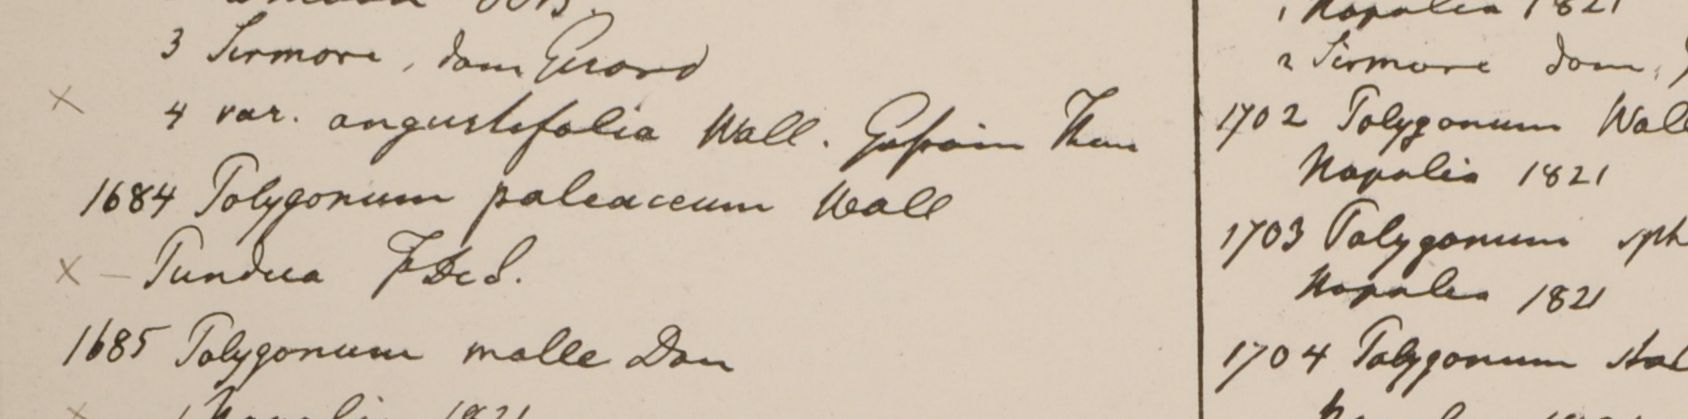 3 Sirmore, dom Gerard
× 4 var. angustifolia Wall. Gossain Than
1684 Polygonum paleaceum Wall
× – Pundua F De S.
1685 Polygonum molle Don
× 1 Napalia 1821
1 Napalia 1821
2 Sirmore dom.
1702 Polygonum Wall
Napalia 1821
1703 Polygonum sph
Napalia 1821
1704 Polygonum stal